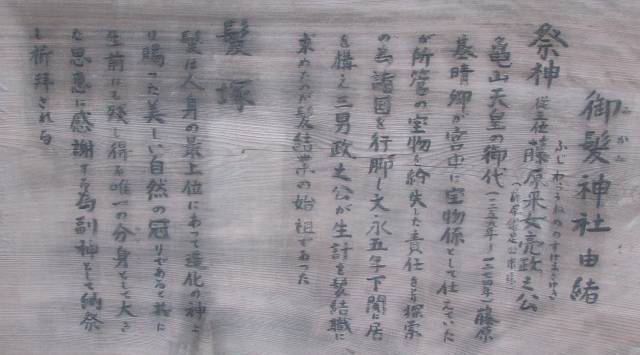 御髪神社由緒
みかみ
祭神 従三位 藤原采女亮政之公
ふじわらうねめのすけまさゆき
亀山天皇の御代(一二五九年〜一二七四年)藤原
基晴卿が宮中に宝物係として仕えていた
が所管の宝物を紛失した責任をとり探索
の為諸国を行脚し文永五年下関に居
を構え三男政之公が生計を髪結職に
求めたのが髪結業の始祖であった
髪塚
髪は人身の最上位にあって造化の神より
賜った美しい自然の冠りであると共に
生前にも残し得る唯一の分身として大き
な恩恵に感謝する為副神として納祭
し祈拝される